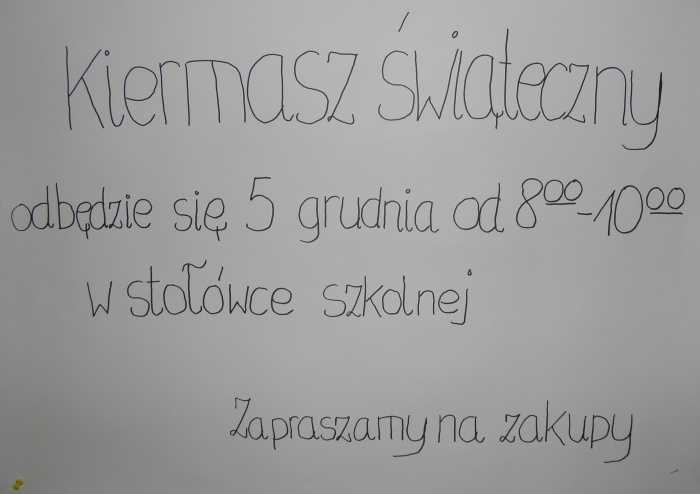 Kiermasz świąteczny
odbędzie się 5 grudnia od 8⁰⁰-10⁰⁰
w stołówce szkolnej
Zapraszamy na zakupy